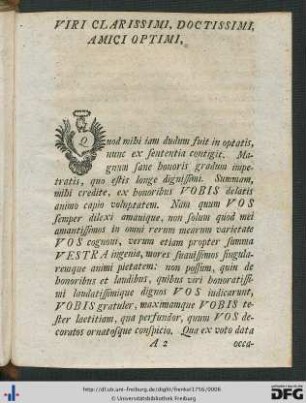 VIRI CLARISSIMI, DOCTISSIMI,
AMICI OPTIMI.
Quod mihi iam dudum fuit in optatis,
nunc ex sententia contigit. Ma-
gnum sane honoris gradum impe-
tratis, quo estis longe dignissimi. Summam,
mihi credite, ex honoribus VOBIS delatis
animo capio voluptatem. Nam quum VOS
semper dilexi amauique, non solum quod mei
amantissimos in omni rerum mearum varietate
VOS cognoui, verum etiam propter summa
VESTRA ingenia, mores suauissimos singula-
remque animi pietatem: non possum, quin de
honoribus et laudibus, quibus viri honoratissi-
mi laudatissimique dignos VOS iudicarunt,
VOBIS gratuler, maximamque VOBIS te-
ster laetitiam, qua perfundor, quum VOS de-
coratos ornatosque conspicio. Qua ex voto data
A 2 occa-
http://dl.ub.uni-freiburg.de/diglit/frenkel1756/0006
© Universitätsbibliothek Freiburg
gefördert durch die
DFG